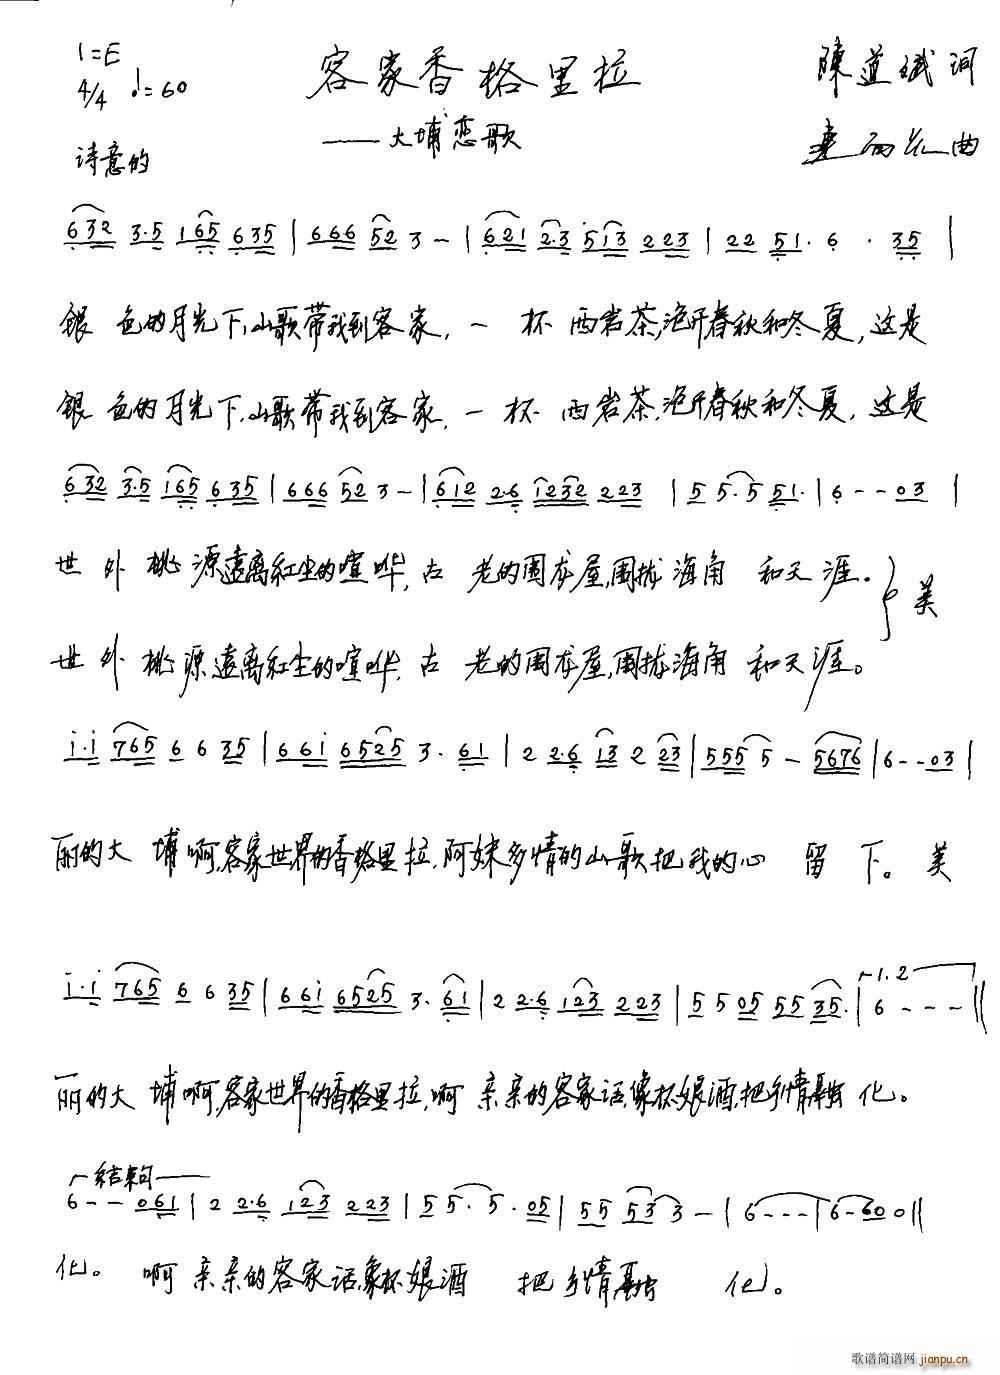 1=E
4/4 ♩=60
客家香格里拉
陳道斌 词
——大埔恋歌
曲
诗意的
632 3·5 165 635 | 666 52 3 – | 621 2·3 513 223 | 22 51· 6 · 35 |
銀 色的月光下,山歌带我到客家, 一 杯 西岩茶,泡开春秋和冬夏, 这是
銀 色的月光下,山歌带我到客家, 一 杯 西岩茶,泡开春秋和冬夏, 这是
632 3·5 165 635 | 666 523 – | 612 2·6 1232 223 | 5 5·5 51· | 6 - - 03 |
世 外 桃 源遠离紅尘的喧哗, 古 老的围龙屋,围拢海角 和天涯. } 美
世 外 桃 源遠离紅尘的喧哗, 古 老的围龙屋,围拢海角 和天涯。
i·i 765 6 6 35 | 66i 6525 3· 61 | 2 2·6 13 2 23 | 555 5 – 5676 | 6 - - 03 |
丽的大 埔啊,客家世界的香格里拉,阿妹多情的山歌把我的心 留 下。 美
i·i 765 6 6 35 | 66i 6525 3· 61 | 2 2·6 123 223 | 5 5 05 55 35· | 1.2 6 - - - ||
丽的大 埔啊,客家世界的香格里拉,啊 亲亲的客家话,像杯娘酒,把乡情融 化。
结束句
6 - - 061 | 2 2·6 123 223 | 5 5· 5· 05 | 55 53 3 – | 6 - - - | 6 - 60 0 ||
化。 啊 亲亲的客家话,像杯娘酒 把 乡情融 化。
歌谱简谱网 jianpu.cn